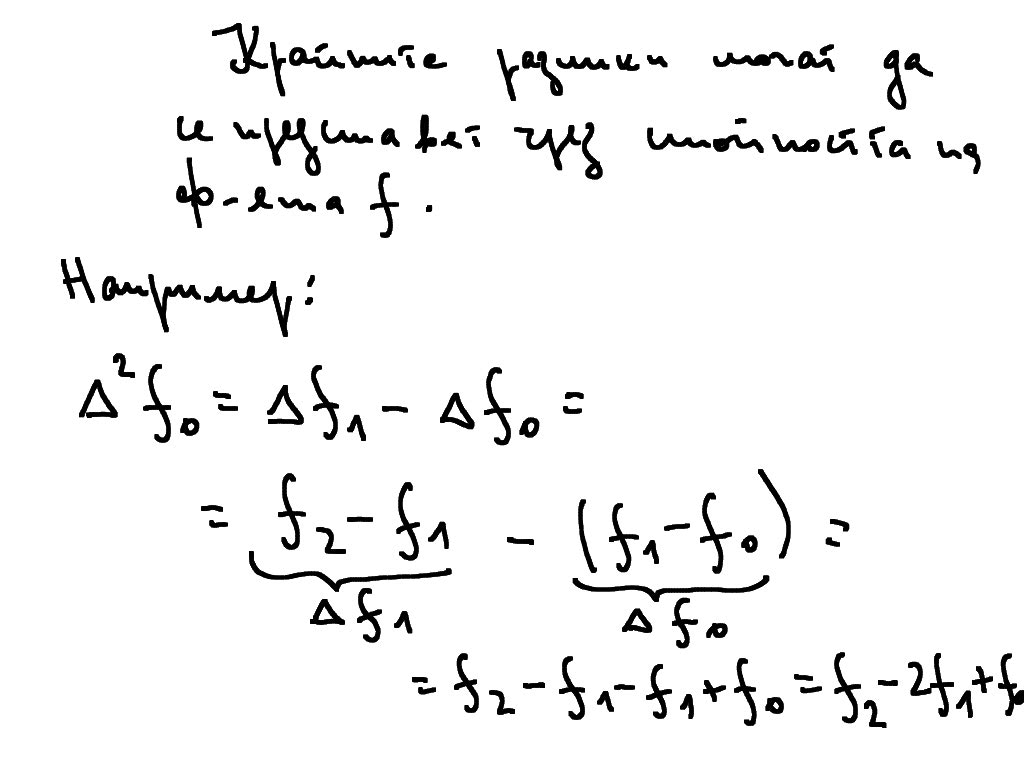 Крайните разлики могат да
се представят чрез стойността на
ф-ята f.
Например:
Δ²f₀ = Δf₁ - Δf₀ =
= f₂ - f₁ - (f₁ - f₀) =
Δf₁ Δf₀
= f₂ - f₁ - f₁ + f₀ = f₂ - 2f₁ + f₀